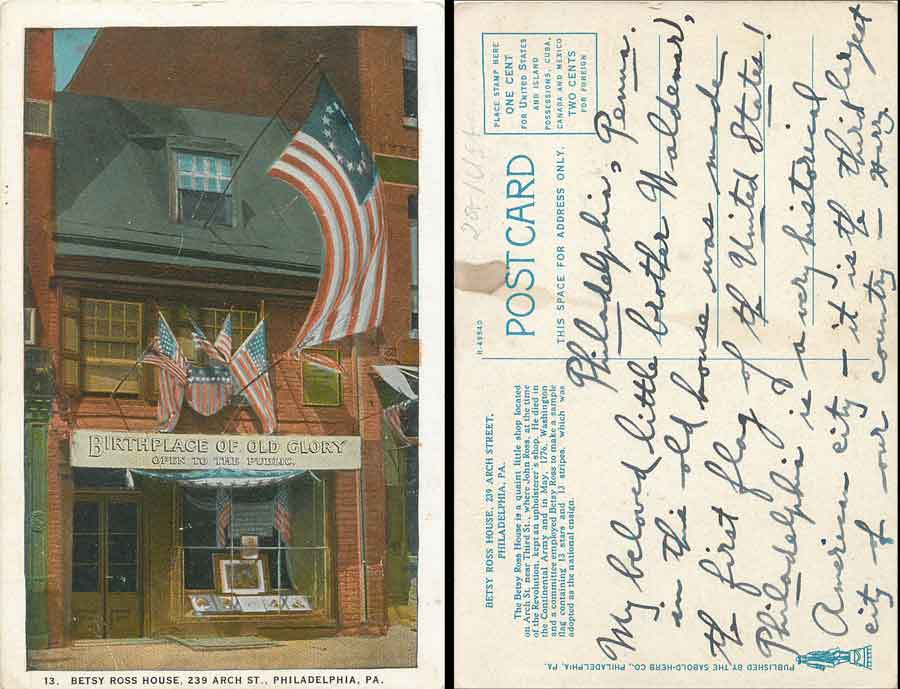 BIRTHPLACE OF OLD GLORY
OPEN TO THE PUBLIC.
13. BETSY ROSS HOUSE, 239 ARCH ST., PHILADELPHIA, PA.
PLACE STAMP HERE
ONE CENT
FOR UNITED STATES
AND ISLAND
POSSESSIONS, CUBA,
CANADA AND MEXICO
TWO CENTS
FOR FOREIGN
POST CARD
THIS SPACE FOR ADDRESS ONLY.
BETSY ROSS HOUSE, 239 ARCH STREET,
PHILADELPHIA, PA.
The Betsy Ross House is a quaint little shop located
on Arch St. near Third St., where John Ross, at the time
of the Revolution, kept an upholsterer's shop. He died in
the Continental Army and in May, 1776, Washington
and a committee employed Betsy Ross to make a sample
flag containing 13 stars and 13 stripes, which was
adopted as the national ensign.
Philadelphia, Penna.
My beloved little brother Waldemar,
in this old house was made
th first flag of th United States!
Philadelphia is a very historical
American city – it is th third largest
city of our country – Harry
PUBLISHED BY THE SABOLD-HERB CO., PHILADELPHIA, PA.